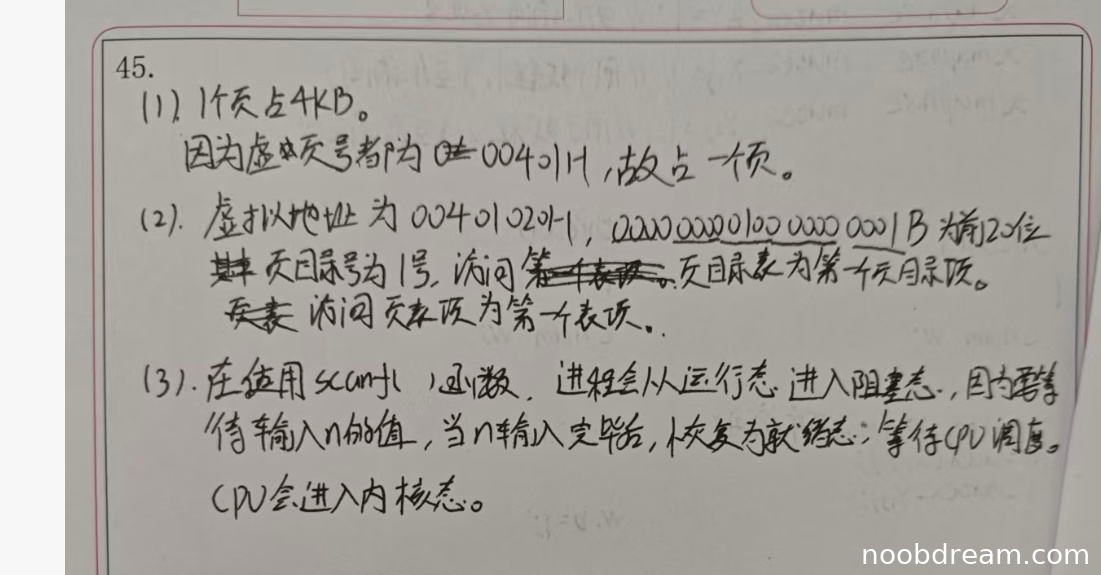 45.
(1). 1个页占4KB。
因为虚页号都为 00401H,故占一个页。
(2). 虚拟地址为 00401020H, 0000 0000 0100 0000 0001 B 为前20位
页目录号为1号,访问 页目录表为第一个页目录项。
访问页表项为第一个表项。
(3). 在使用scanf( )函数,进程会从运行态 进入阻塞态,因为需等
待输入n的值,当n输入完毕后,恢复为就绪态,等待CPU调度。
CPU会进入内核态。
noobdream.com